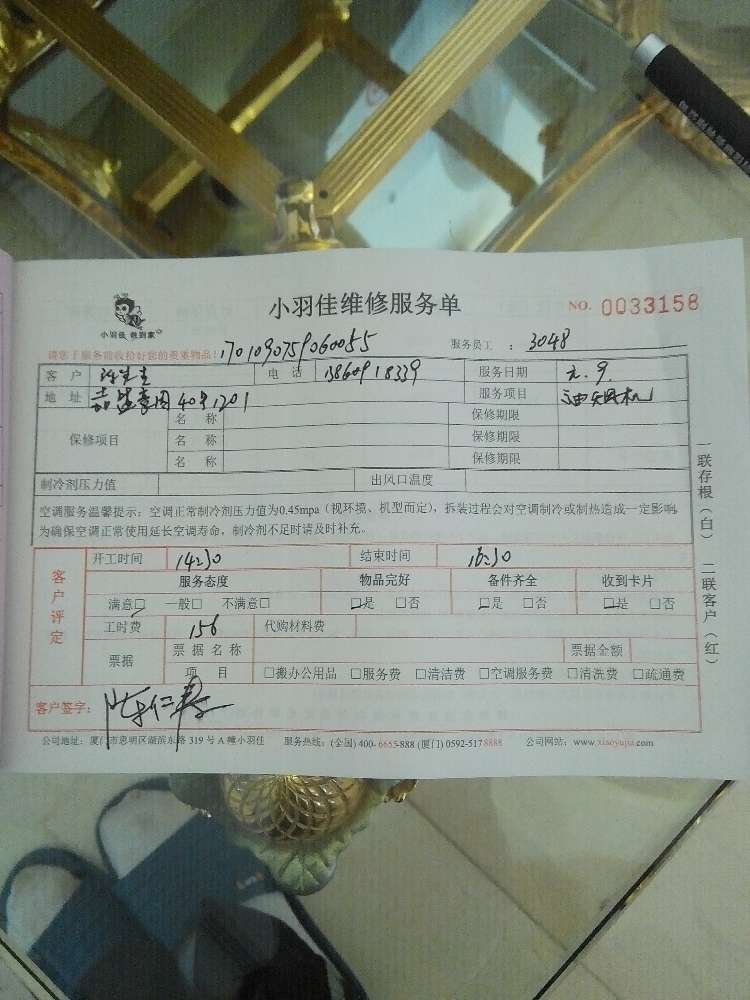 小羽佳维修服务单 NO. 0033158
小羽佳 帮到家
请您于服务前收拾好您的贵重物品! 1701090759060055 服务员工 : 3048
客 户 电 话 服务日期 元.9.
地 址 嘉盛豪园40号1201 服务项目 油烟机
保修项目
名 称 保修期限
名 称 保修期限
名 称 保修期限
制冷剂压力值 出风口温度
空调服务温馨提示：空调正常制冷剂压力值为0.45mpa（视环境、机型而定），拆装过程会对空调制冷或制热造成一定影响，
为确保空调正常使用延长空调寿命，制冷剂不足时请及时补充。
一联存根（白） 二联客户（红）
客户评定
开工时间 14:30 结束时间 16:30
服务态度 物品完好 备件齐全 收到卡片
满意☑ 一般□ 不满意□ ☑是 □否 ☑是 □否 ☑是 □否
工时费 156 代购材料费
票据 票 据 名 称 票据金额
项 目 □搬办公用品 □服务费 □清洁费 □空调服务费 □清洗费 □疏通费
客户签字：
公司地址：厦门市思明区湖滨东路 319 号 A 幢小羽佳 服务热线：(全国) 400-6655-888 (厦门) 0592-5178888 公司网站：www.xiaoyujia.com